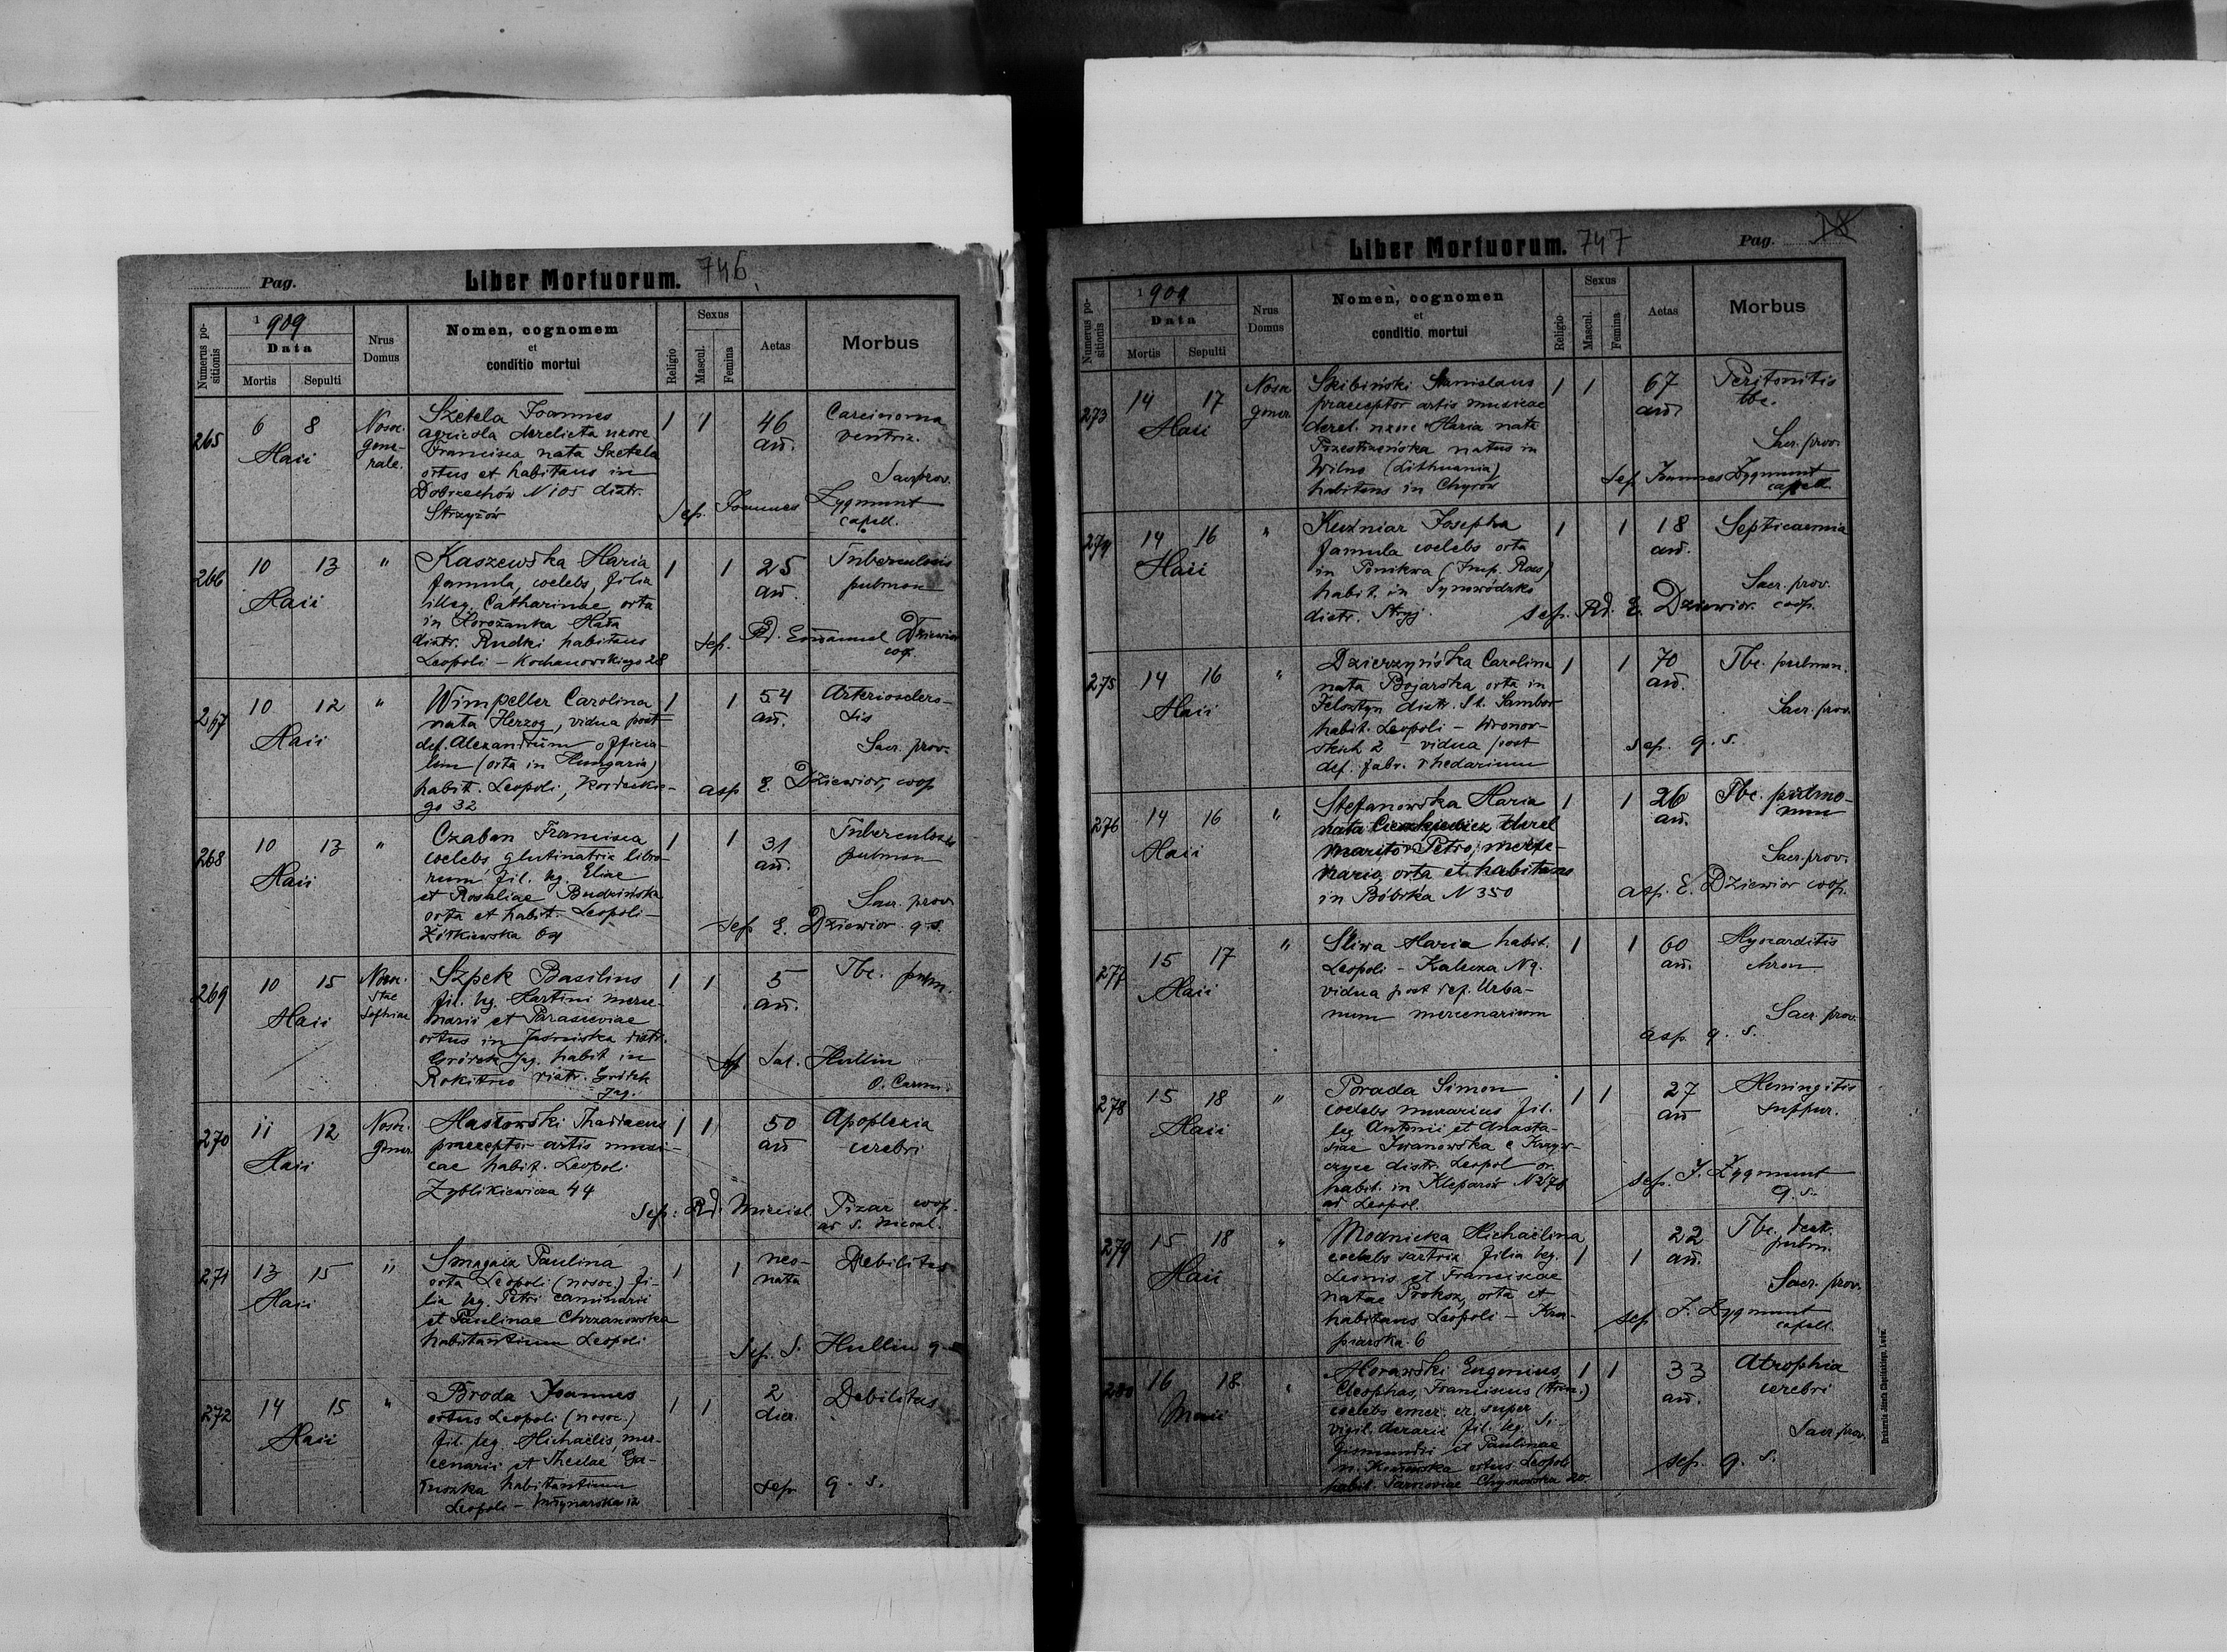 Pag.
Liber Mortuorum. 746
Numerus positionis
1909
Data
Mortis Sepulti
Nrus Domus
Nomen, cognomem
et
conditio mortui
Religio
Sexus
Mascul. Femina
Aetas
Morbus
265 6 8 Maii
Nosoc. gene-
rale.
Szetela Joannes
agricola derelicta uxore
Francisca nata Szetela
ortus et habitans in
Dobrzechów N 105 distr.
Strzyżów
1 1 46 an.
Carcinoma
ventric.
Sacr. prov.
Sep. Joannes Zygmunt
capell.
266 10 13 Maii "
Kaszewska Maria
famula, coelebs, filia
illeg. Catharinae orta
in Horożanka Mała
distr. Rudki habitans
Leopoli - Kochanowskiego 28
1 1 25 an.
Tuberculosis
pulmon
Sep. Rd. Emanuel Dziewior
coop.
267 10 12 Maii "
Wimpeller Carolina
nata Herzog, vidua post
def. Alexandrum officia-
lem (orta in Hungaria)
habit. Leopoli,
go 32
1 1 54 an.
Arterioscler-
sis
Sacr. prov.
asp E. Dziewior, coop
268 10 13 Maii "
Czaban Francisca
coelebs glutinatrix libro-
rum fil. leg. Eliae
et Rosaliae Budzińska
orta et habit. Leopoli -
Żółkiewska 64
1 1 31 an.
Tuberculosis
pulmon
Sacr. prov
sep E. Dziewior q.s.
269 10 15 Maii
Nosoc.
Stae
Sophiae
Szpek Basilius
fil. leg. Martini merce-
narii et Parasceviae
ortus in Jaśniska distr.
Gródek Jag. habit in
Rokitno distr. Gródek
Jag.
1 1 5 an.
Tbc. pulm.
sep Sal. Hullin
O. Carm.
270 11 12 Maii
Nosoc.
gener.
Masłowski Thadaeus
praeceptor artis musi-
cae habit. Leopoli
Zyblikiewicza 44
1 1 50 an
Apoplexia
cerebri
Sep: Rd. Miecisl. Pizar coop.
ad S. Nicol.
271 13 15 Maii "
Smagała Paulina
orta Leopoli (nosoc.) fi-
lia leg. Petri caminarii
et Paulinae Chrzanowska
habitantium Leopoli
1 1 neo-
nata
Debilitas
Sep. S. Hullin q
272 14 15 Maii "
Broda Joannes
ortus Leopoli (nosoc.)
fil. leg Michaëlis mer-
cenarii et Theclae Ga-
habitantium
Leopoli - Młynarska 12
1 1 2 dier.
Debilitas
sep q. s.
Liber Mortuorum. 747
Pag.
Numerus positionis
1909
Data
Mortis Sepulti
Nrus Domus
Nomen, cognomen
et
conditio mortui
Religio
Sexus
Mascul. Femina
Aetas
Morbus
273 14 17 Maii
Nosoc
gener
Skibiński Stanislaus
praeceptor artis musicae
derel. uxore Maria nata
Przestrzeńska natus in
Wilno (Lithuania)
habitans in Chyrów
1 1 67 an
Peritonitis
tbc.
Sacr. prov.
Sep. Joannes Zygmunt
capell.
274 14 16 Maii "
Kuźniar Josepha
famula coelebs orta
in Ponikwa (Imp. Ross)
habit. in Synowódzko
distr. Stryj.
1 1 18 an.
Septicaemia
Sacr. prov.
sep. Rd. E. Dziewior coop.
275 14 16 Maii "
Dzierzyńska Carolina
nata Bojarska orta in
Felsztyn distr. St. Sambor
habit. Leopoli - Wronow-
skich 2 - vidua post
def. fabr. rhedarium
1 1 70 an.
Tbc. pulmon.
Sacr. prov.
sep. q. s.
276 14 16 Maii "
Stefanowska Maria
nata derel
marito Petro, merce-
nario, orta et habitans
in Bóbrka N 350
1 1 26 an.
Tbc. pulmo-
num
Sacr. prov.
asp. E. Dziewior coop.
277 15 17 Maii "
Śliwa Maria habit.
Leopoli - Kalecza N 9.
vidua post def. Urba-
num mercenarium
1 1 60 an.
Myocarditis
chron
Sacr. prov.
asp. q. s.
278 15 18 Maii "
Porada Simon
coelebs murarius fil.
leg Antonii et Anasta-
siae Iwanowska e Krzyw-
czyce distr. Leopol or.
habit. in Kleparów N 376
ad Leopol.
1 1 27 an
Meningitis
suppur.
sep. J. Zygmunt
q. s.
279 15 18 Maii "
Modnicka Michaëlina
coelebs sartrix filia leg.
Leonis et Franciscae
natae Prokosz, orta et
habitans Leopoli - Kra-
piarska 6
1 1 22 an.
Tbc.
pulm.
Sacr. prov.
sep J. Zygmunt
capell.
280 16 18 Maii "
Morawski Eugenius,
Cleophas, Franciscus (trin.)
coelebs emer. cr. super
vigil. aerarii fil. leg. Si-
gismundi et Paulinae
n. ortus Leopoli
habit. Tarnoviae - Chyszowska 20.
1 1 33 an.
Atrophia
cerebri
Sacr. prov.
sep. q. s.
Drukarnia Józefa Chęcińskiego, Lwów.